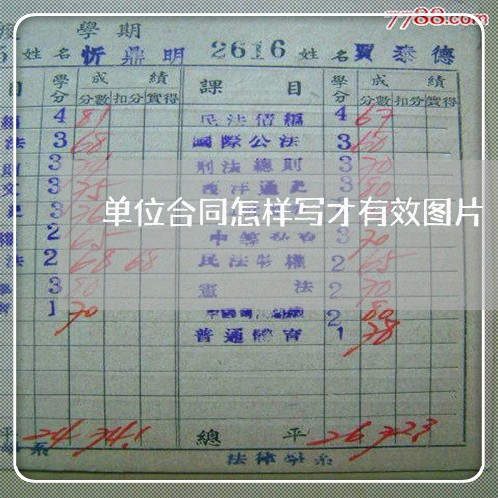 7788.com
學期
姓名 忻鼎明 2616 姓名 賈泰德
目 學分 成績 課目 學分 成績
分數 扣分 實得 分數 扣分 實得
4 81 民法債編 4 67
法 3 68 國際公法 3 60
3 刑法總則 3 70
3 75 西洋通史 3 80
單位合同怎样写才有效图片
2 65 3 70
法 2 68 68 民法物權 2 65
3 80 憲法 2 70
1 70 2 80
普通體育 1 78
平 24 74.1 總平 26 72.3
系 法律學系